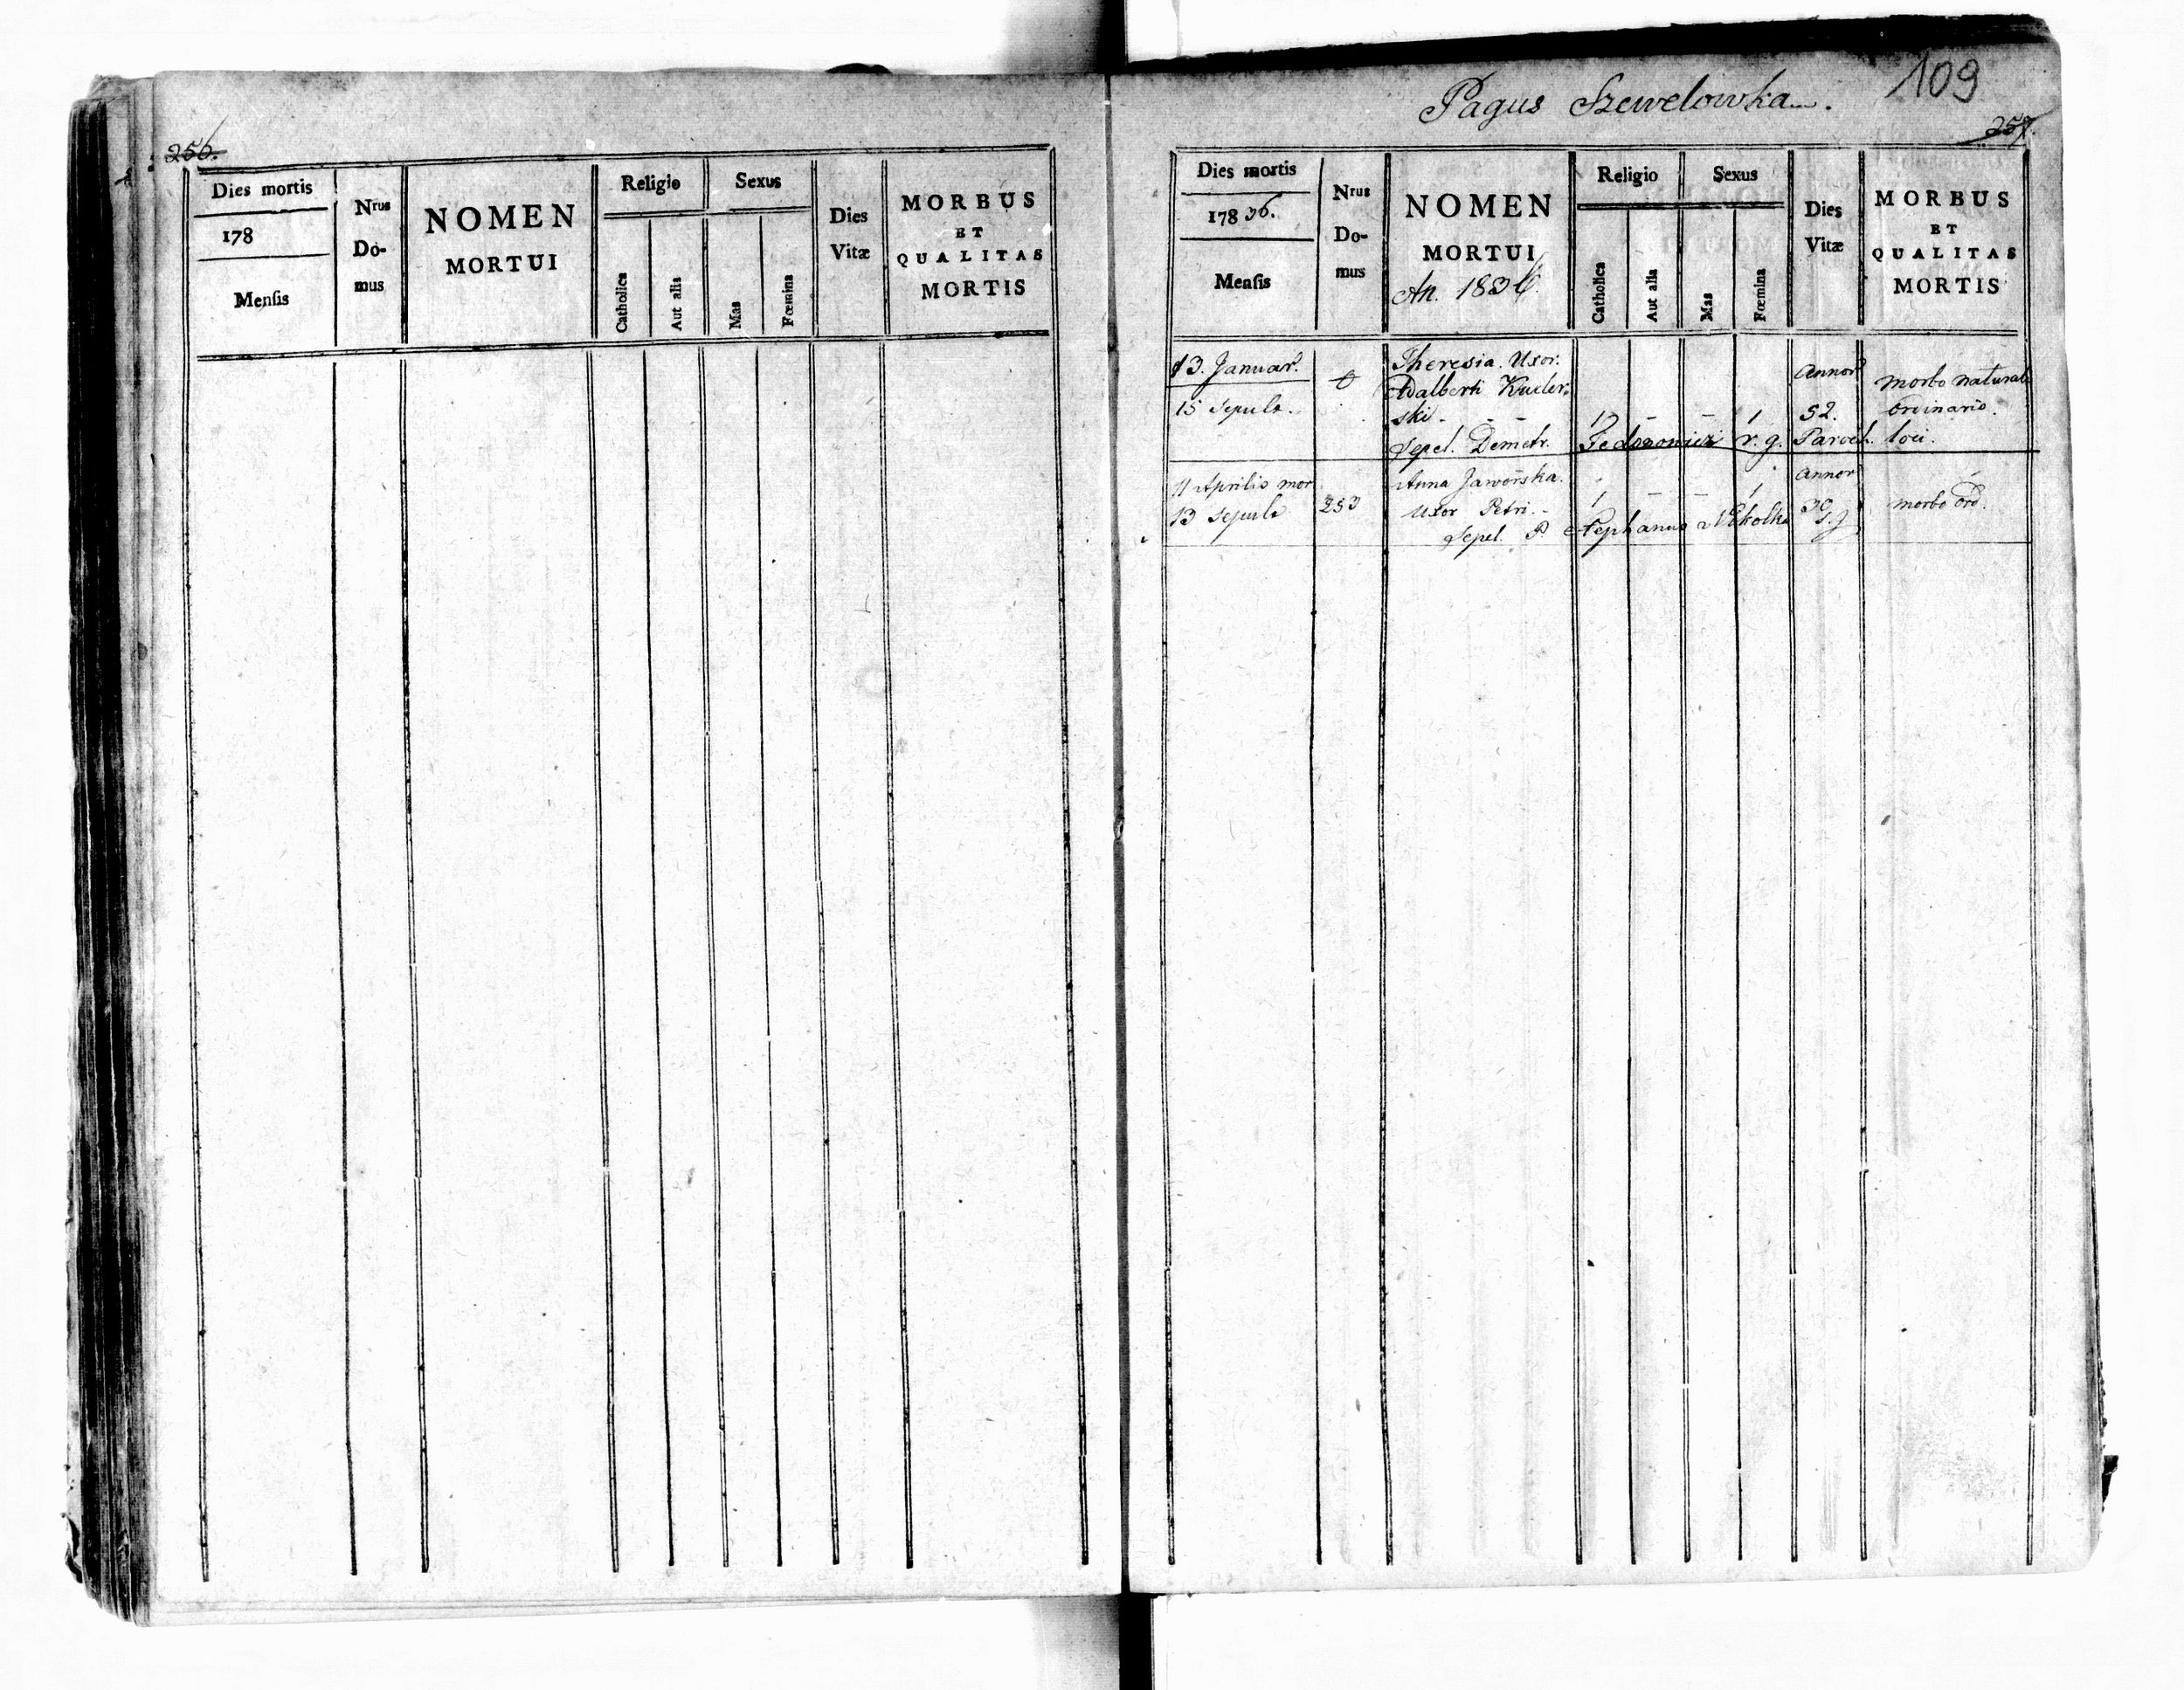 256.
Dies mortis
178
Mensis
Nrus
Do-
mus
NOMEN
MORTUI
Religio
Catholica
Aut alia
Sexus
Mas
Fœmina
Dies
Vitæ
MORBUS
ET
QUALITAS
MORTIS
Pagus Szewelowka.
109
257.
Dies mortis
178 36.
Mensis
Nrus
Do-
mus
NOMEN
MORTUI
An. 1836
Religio
Catholica
Aut alia
Sexus
Mas
Fœmina
Dies
Vitæ
MORBUS
ET
QUALITAS
MORTIS
13. Januar.
15 Sepult.
Theresia. Uxor.
Adalberti
ski - - -
1 - - 1
Annor
52.
morbo naturali
ordinario.
Sepel. Demetr. Fedorowicz r. g. Paroch. loci.
11 Aprilis mor
13 Sepult
253
Anna Jaworska.
Uxor Petri. -
1 - - 1
Annor
30
morbo ord.
Sepel. P Stephanus